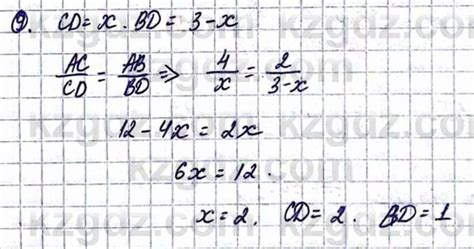 9. CD = x. BD = 3-x
AC/CD = AB/BD => 4/x = 2/3-x
12-4x = 2x
6x = 12.
x = 2. CD = 2. BD = 1
kzgdz.com